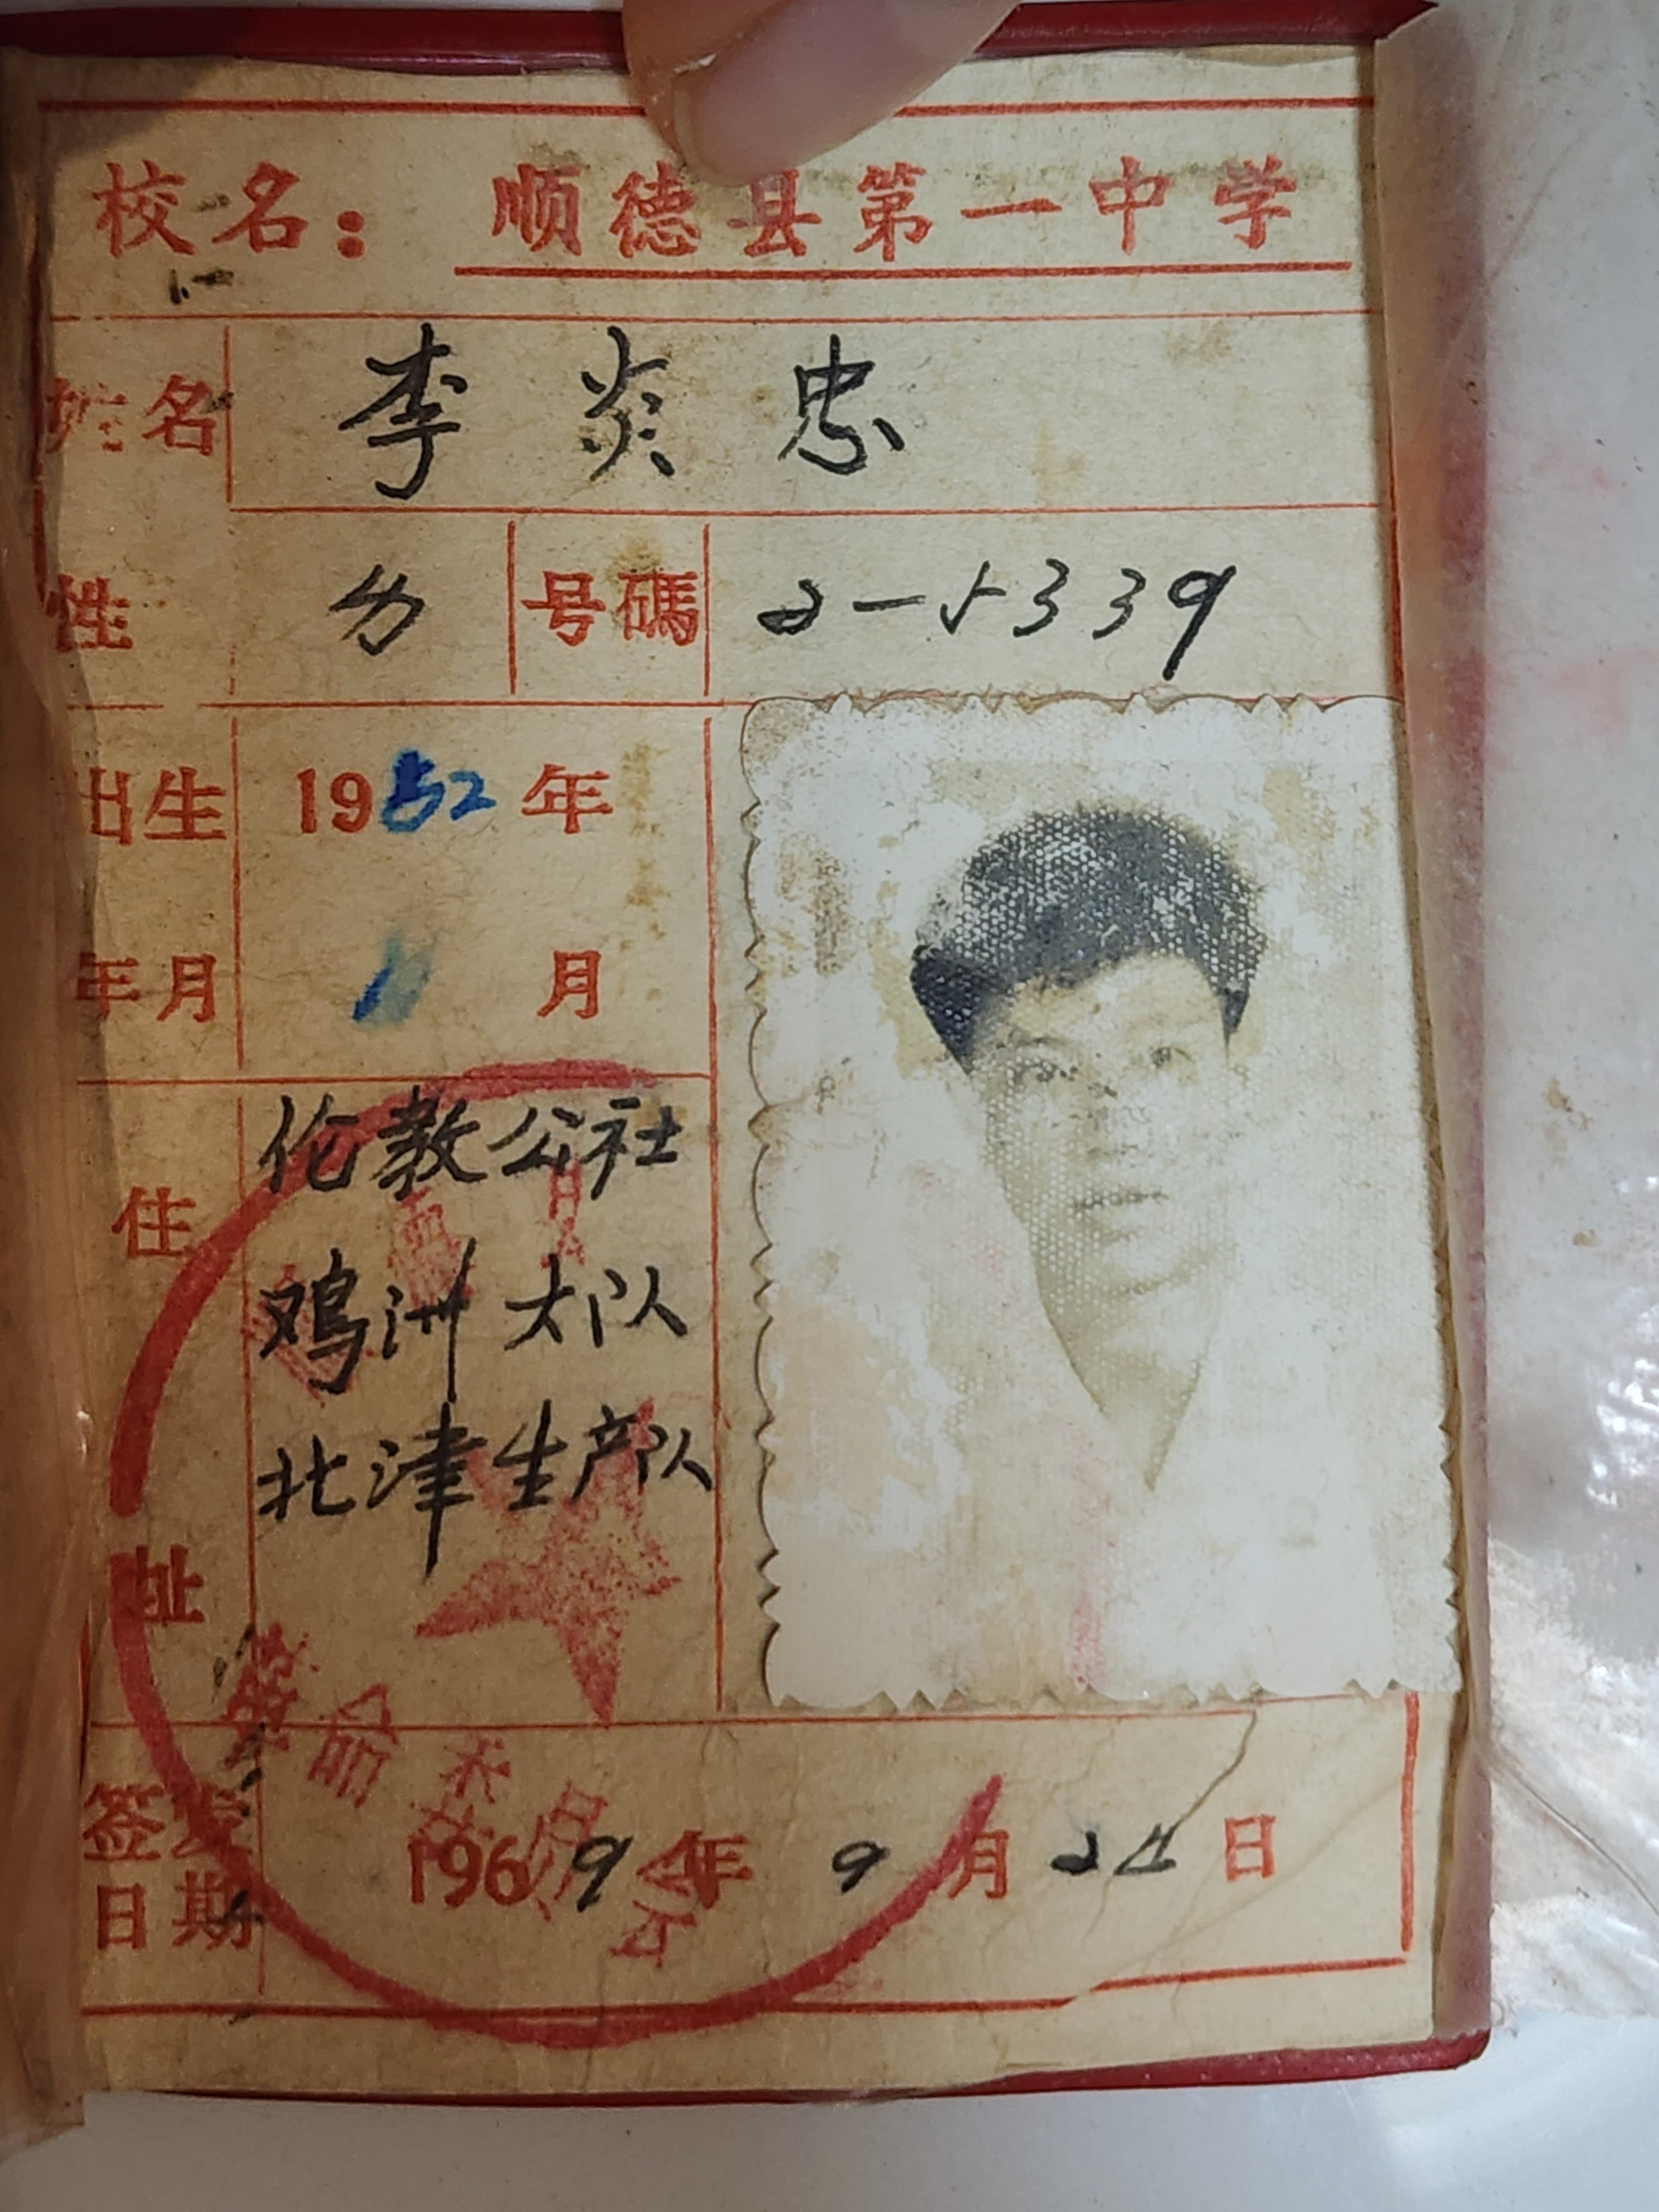 校名： 顺德县第一中学
姓名 李炎忠
性 号碼 2-5339
出生 1952年
年月 月
住 伦教公社
鸡洲大队
北津生产队
址
签发 1969年9月24日
日期
革命委员会